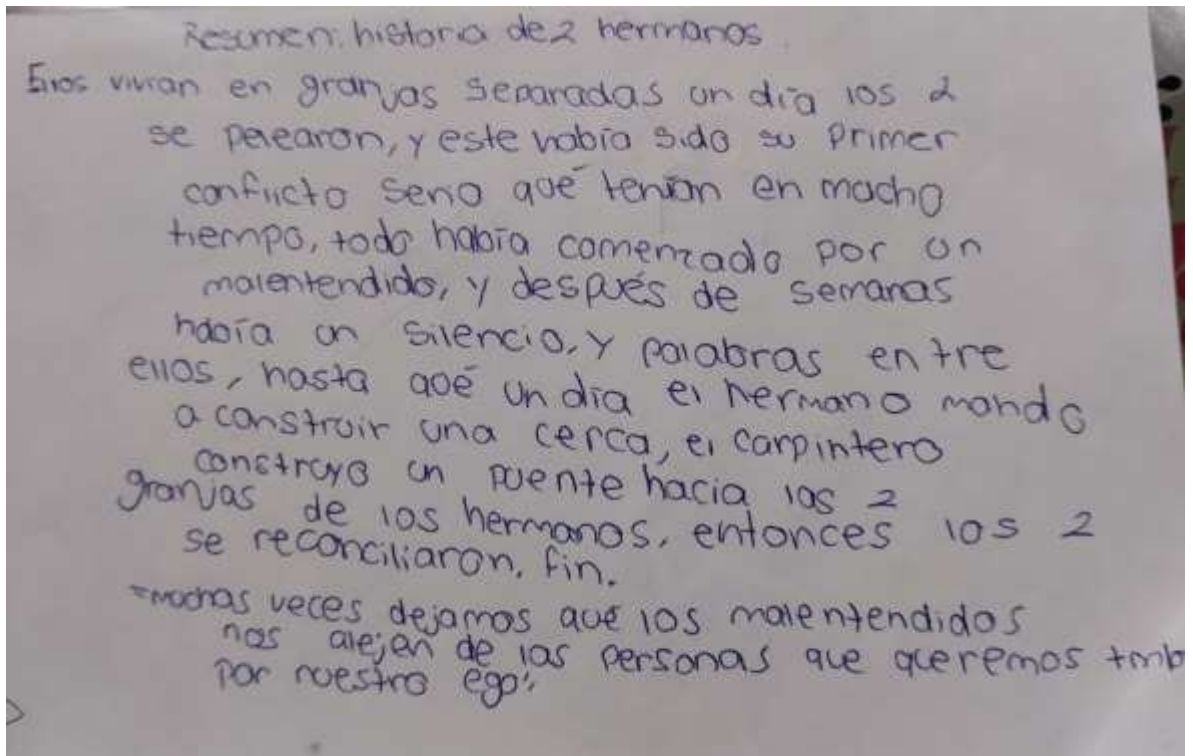 Resumen: historia de 2 hermanos.
Ellos vivian en granjas separadas un día los 2
se pelearon, y este había sido su primer
conflicto serio que tenían en mucho
tiempo, todo había comenzado por un
malentendido, y después de semanas
había un silencio, y palabras entre
ellos, hasta qué un día el hermano mando
a construir una cerca, el carpintero
construyo un puente hacia las 2
granjas de los hermanos, entonces los 2
se reconciliaron. fin.
=muchas veces dejamos que los malentendidos
nos alejen de las personas que queremos tmb
por nuestro ego.